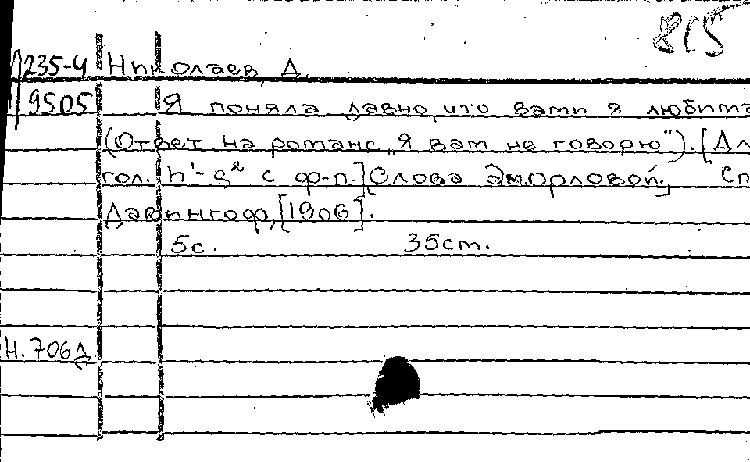 815
235-4 Николаев, Д.
9505 Я поняла давно, что вами я любима
(Ответ на романс „Я вам не говорю"). [Дл
гол. h¹-g² с ф-п.] [Слова Эморловой.] Сп
Давингоф, [1906].
5с. 35ст.
Н. 706д